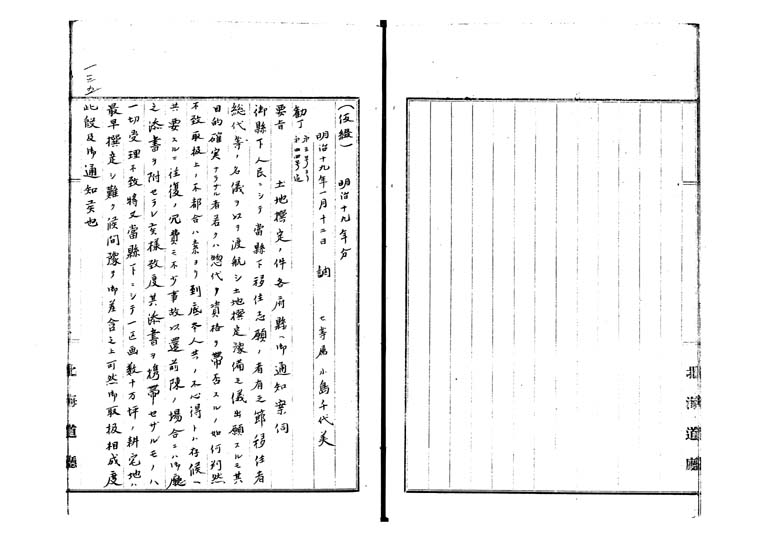 北海道廳
(伍綴) 明治十九年分
明治十九年一月十二日 調 七等属 小島千代美
勧丁
要旨 土地撰定ノ件各府縣ヘ御通知案伺
御縣下人民ニシテ當縣下移住志願ノ者有之節移住者
總代等ノ名儀ヲ以テ渡航シ土地撰定豫備之儀出願スルモ其
目的確実ナラサル者若クハ惣代ノ資格ヲ帶否スルノ如何判然
不致取扱上不都合ハ素ヨリ到底本人共ノ不心得トハ存候ヘ
共要スルニ往復ノ冗費モ不少事故以還前陳ノ場合ニハ御廳
之添書ヲ附セラレ候様致度其添書ヲ携帶セサルモノハ
一切受理不致將又當縣下ニシテ一区画数十万坪ノ耕宅地ハ
最早撰定シ難ク候間豫テ御差含之上可然御取扱相成度
此段及御通知候也
一三九
北海道廳